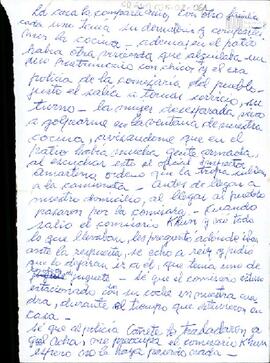 La casa la compartíamos, con otro familia
cada una tenía su dormitorio y compartía-
mos la cocina - además en el patio
había otra vivienda que alquilaba un
matrimonio con chicos y el era
policía de la comisaría del pueblo.
justo el salía a tomar servicio, noc-
turno - la mujer desesperada, 
a golpearme en la ventana de nuestra
cocina, avisandome que en el
patio había mucha gente armada,
al escuchar esto el oficial
ordeno que la tropa subiera
a la camioneta - antes de llegar a
nuestro domicilio, al llegar al pueblo
pasaron por la comisaria - Cuando
salio el comisario Khun y vio todo
lo que llevaban, les pregunto adonde iban
ante la respuesta, se echo a reir y pidio
que le dispararan a el, que tenia una de
juguete - se que el comisario estuvo
estacionado con su coche en nuestra cua-
dra, durante el tiempo que estuvieron en
casa -
Se que al policía lo trasladaron a
 el comisario Khun
espero no la haya pasado